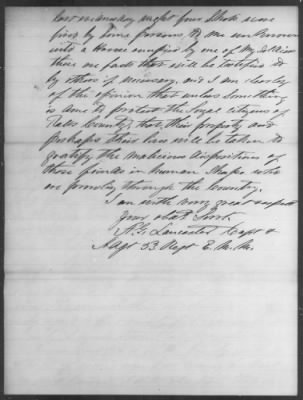 last wensday night four Shots were
fired by some persons to me unknown
into a House occupied by one of my Soldiers
these are facts that will be testified to
by others if necessary, and I am clearly
of the opinion that unless Something
is done to protect the loyal citizens of
Ralls County, that their property and
perhaps their lives will be taken to
gratify the malicious dispositions of
those fiends in human Shape who
are prowling through the County.
I am with very great respect
your obdt Servt
Lancaster Capt &
Adgt 53 Regt E. M. M.